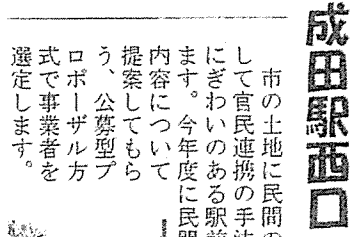 成田駅西口
市の土地に民間の
して官民連携の手法
にぎわいのある駅前
ます。今年度に民間
内容について
提案してもら
う、公募型プ
ロポーザル方
式で事業者を
選定します。